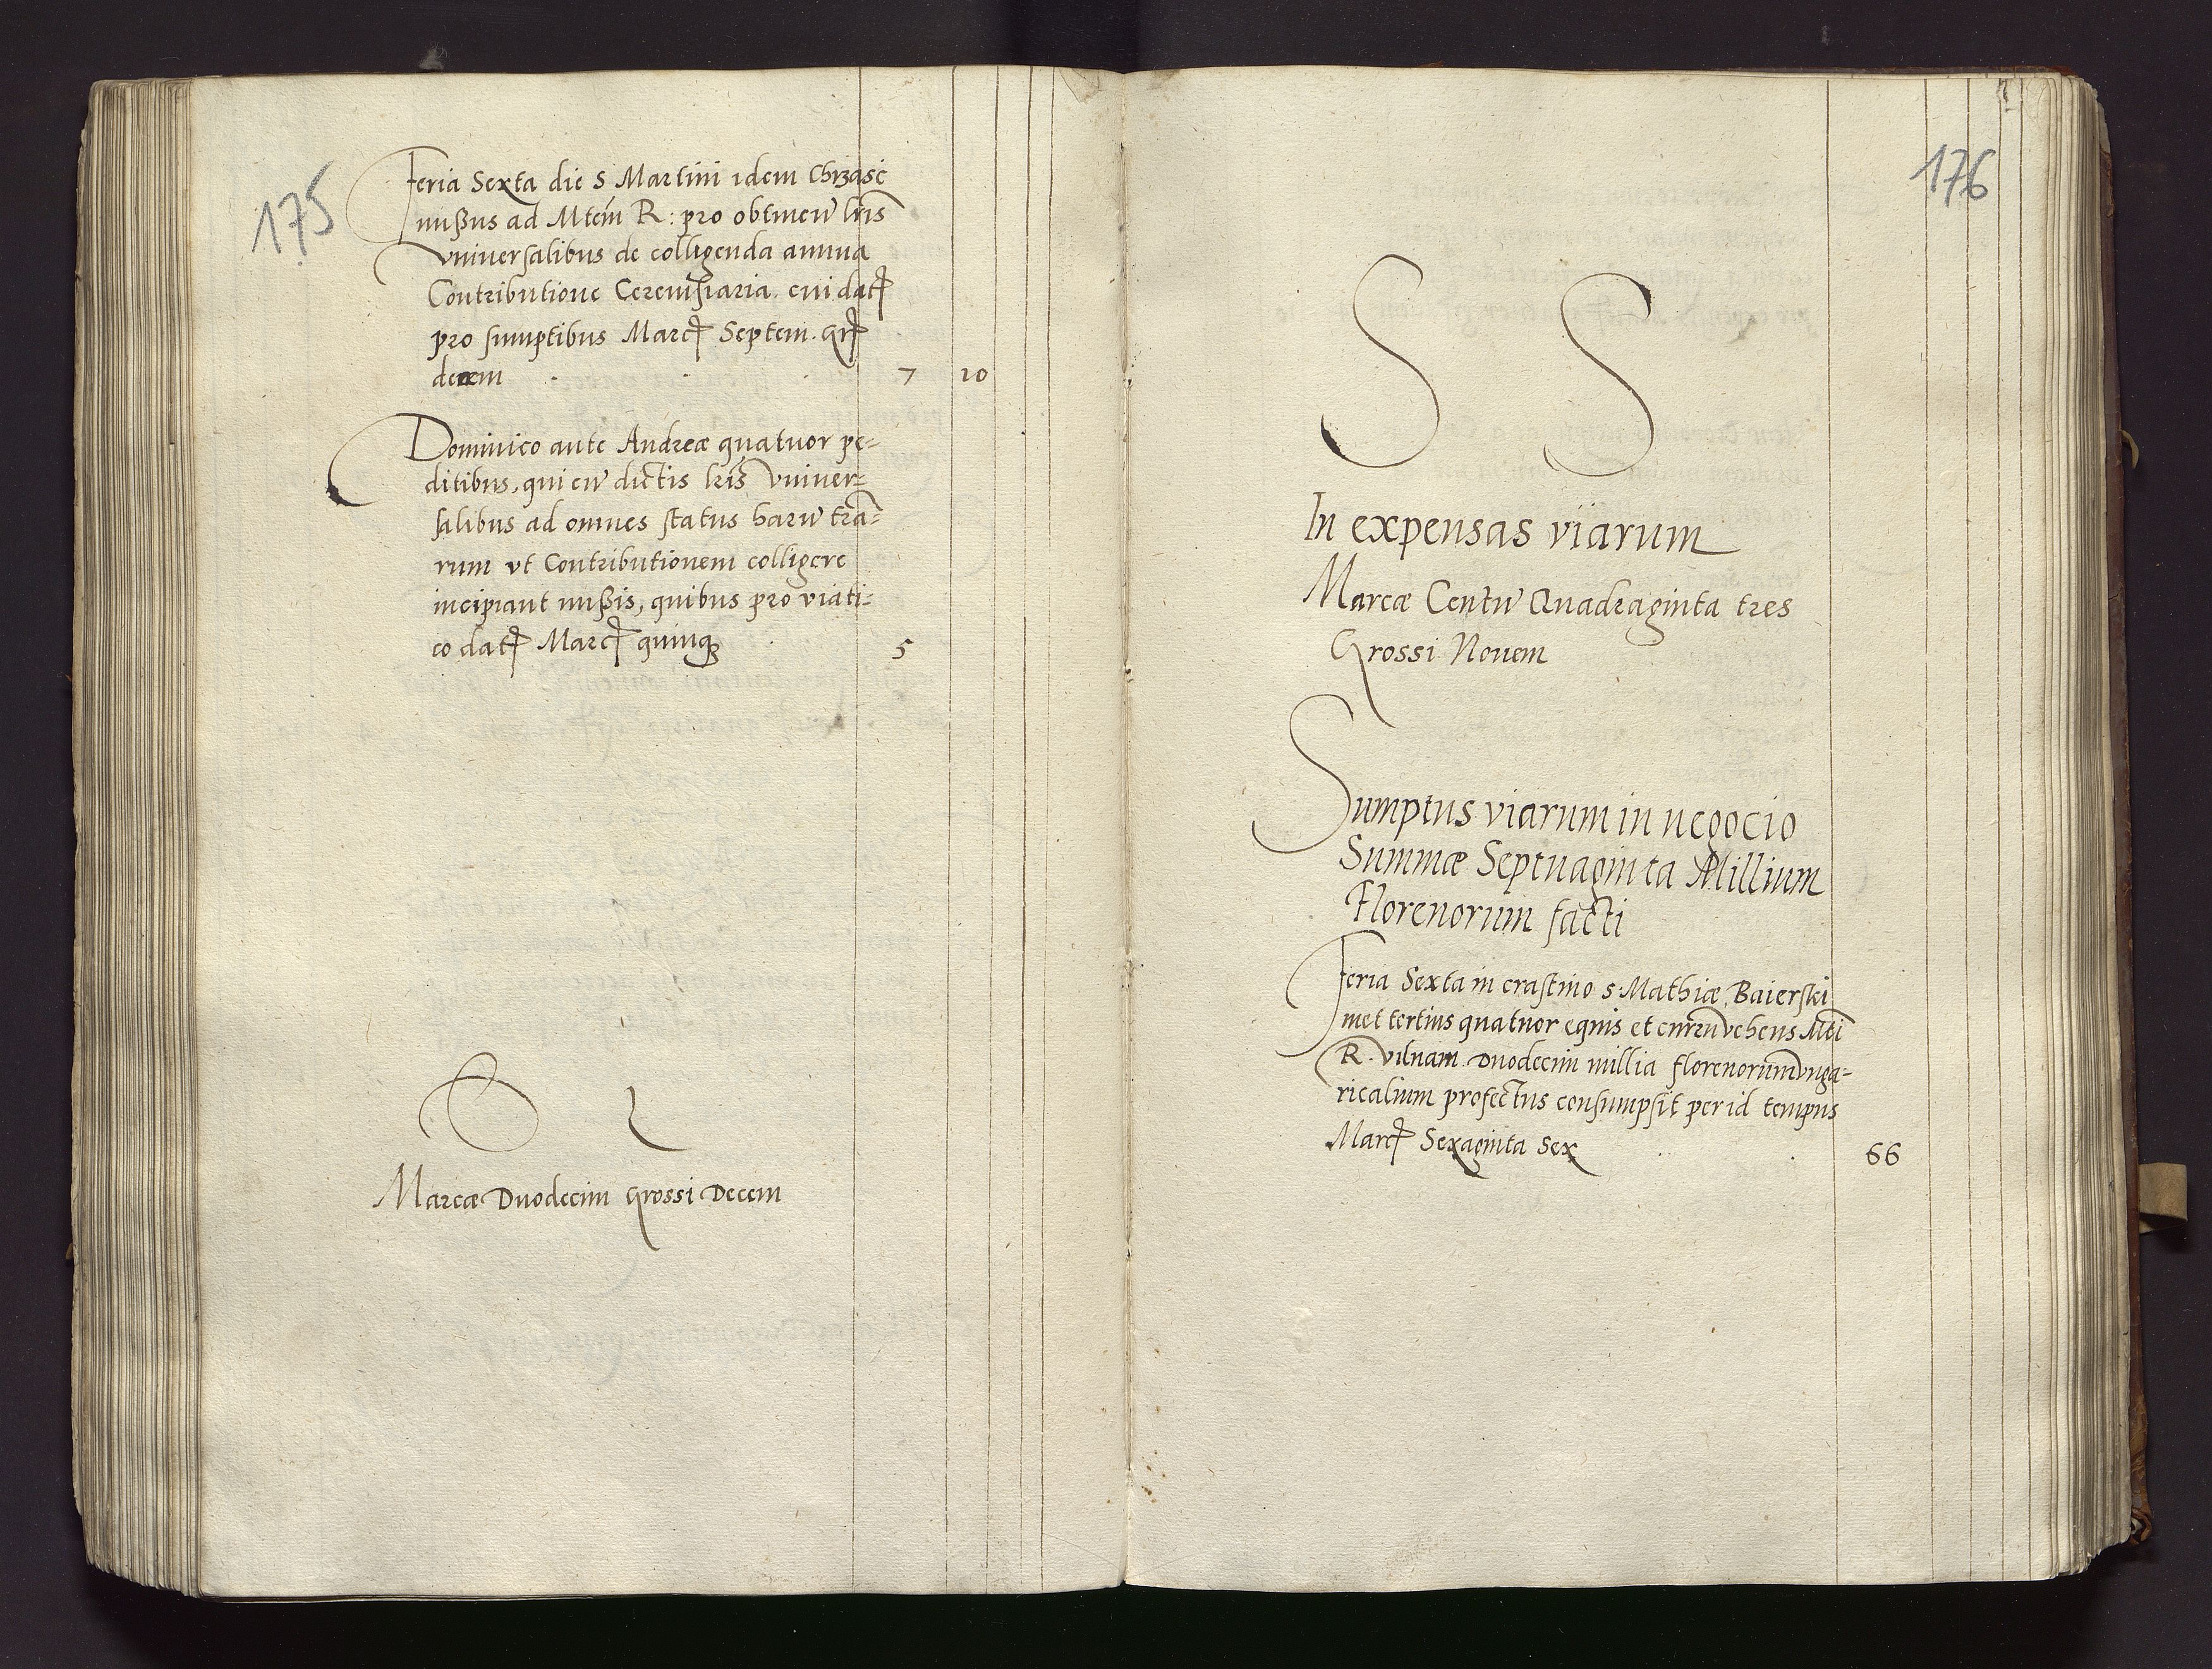 175
Feria Sexta die S Martini idem Chrzasc
mißus ad Mtem R: pro obtinen lris
vniuersalibus de colligenda annua
Contributione Cereuisiaria. cui dat
pro sumptibus Marc Septem. Gr
decem 7 10
Dominico ante Andreæ quatuor pe=
ditibus, qui cu dictis lris vniuer=
salibus ad omnes status haru tra=
rum vt Contributionem colligere
incipiant mißis, quibus pro viati=
co dat Marc quinq 5
Marcæ Duodecim Grossi Decem
176
S S
In expensas viarum
Marcæ Centu Quadraginta tres
Grossi Nouem
Sumptus viarum in negocio
Summæ Septuaginta Millium
Florenorum facti
Feria Sexta in crastino S. Mathiæ, Baierski
met tertius quatuor equis et curru vehens Mti
R. vilnam Duodecim millia florenorum vnga=
ricalium profectus consumpsit per id tempus
Marc Sexaginta Sex 66